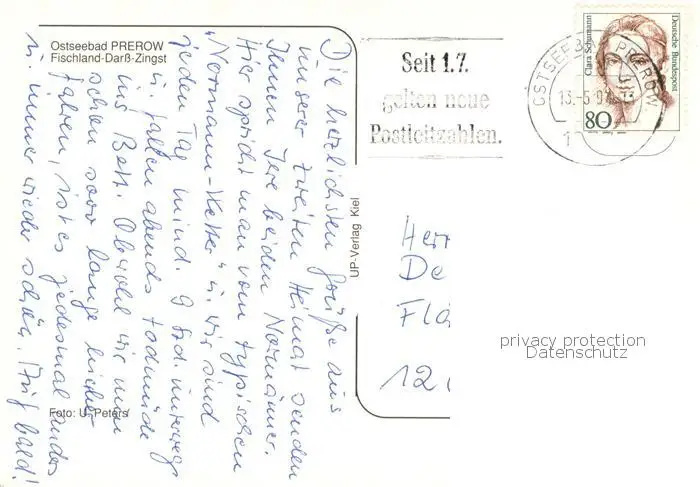 Ostseebad PREROW
Fischland-Darß-Zingst
Die herzlichsten Grüße aus
unserer zweiten Heimat senden
Ihnen Ihre beiden Normänner.
Hier spricht man vom typischen
„Normann-Wetter" u. wir sind
jeden Tag mind. 9 Std. unterwegs
u. fallen abends todmüde
ins Bett. Obwohl wir nun
schon sooo lange hierher
fahren, ist es jedesmal anders
u. immer wieder schön. Auf bald!
Foto: U. Peters
UP-Verlag Kiel
Seit 1.7.
gelten neue
Postleitzahlen.
OSTSEEBAD PREROW
13.-5.94
1
Clara Schumann
Deutsche Bundespost
80
Herr
De
Fla
12
privacy protection
Datenschutz